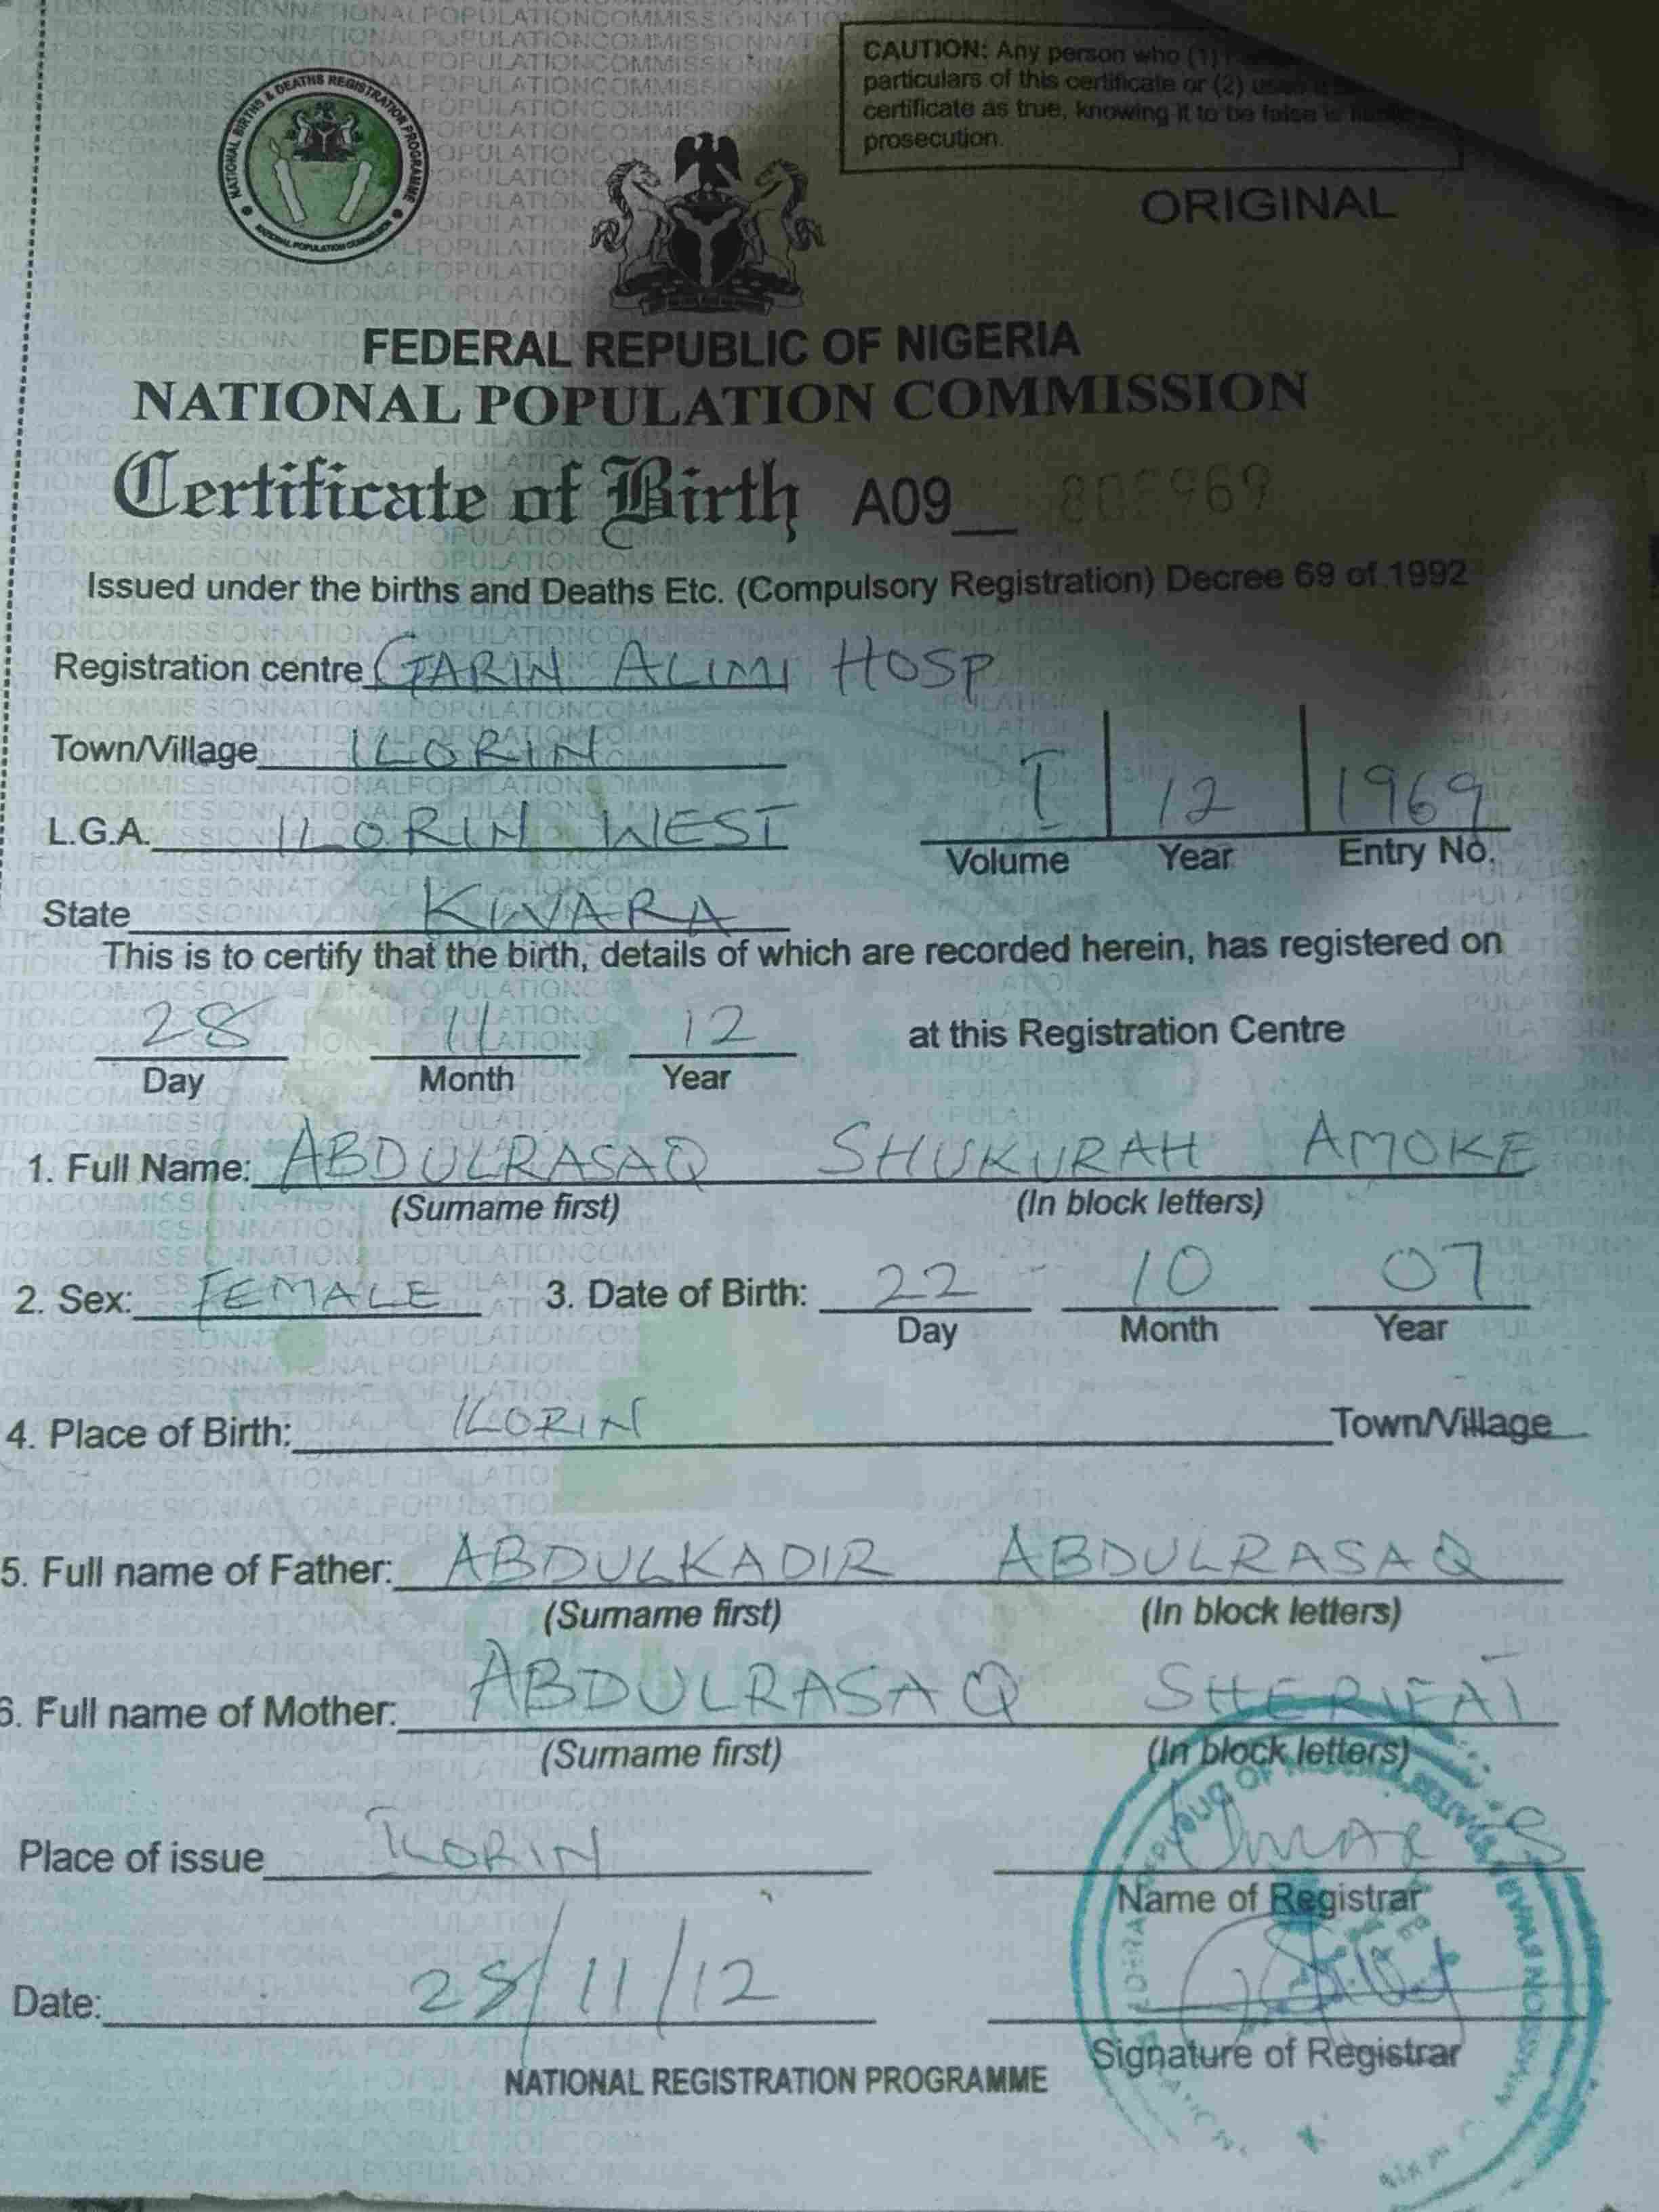 NATIONAL BIRTHS & DEATHS REGISTRATION PROGRAMME
NATIONAL POPULATION COMMISSION
CAUTION: Any person who (1)
particulars of this certificate or (2)
certificate as true, knowing it to be false is
prosecution.
ORIGINAL
FEDERAL REPUBLIC OF NIGERIA
NATIONAL POPULATION COMMISSION
Certificate of Birth A09
Issued under the births and Deaths Etc. (Compulsory Registration) Decree 69 of 1992
Registration centre GARIN ALIMI HOSP
Town/Village ILORIN
L.G.A. ILORIN WEST
I 12 1969
Volume Year Entry No.
State KWARA
This is to certify that the birth, details of which are recorded herein, has registered on
28 11 12 at this Registration Centre
Day Month Year
1. Full Name: ABDULRASAQ SHUKURAH AMOKE
(Surname first) (In block letters)
2. Sex: FEMALE 3. Date of Birth: 22 10 07
Day Month Year
4. Place of Birth: ILORIN Town/Village
5. Full name of Father: ABDULKADIR ABDULRASAQ
(Surname first) (In block letters)
6. Full name of Mother: ABDULRASAQ SHERIFAT
(Surname first) (In block letters)
Place of issue ILORIN
Name of Registrar
Date: 28/11/12
Signature of Registrar
NATIONAL REGISTRATION PROGRAMME